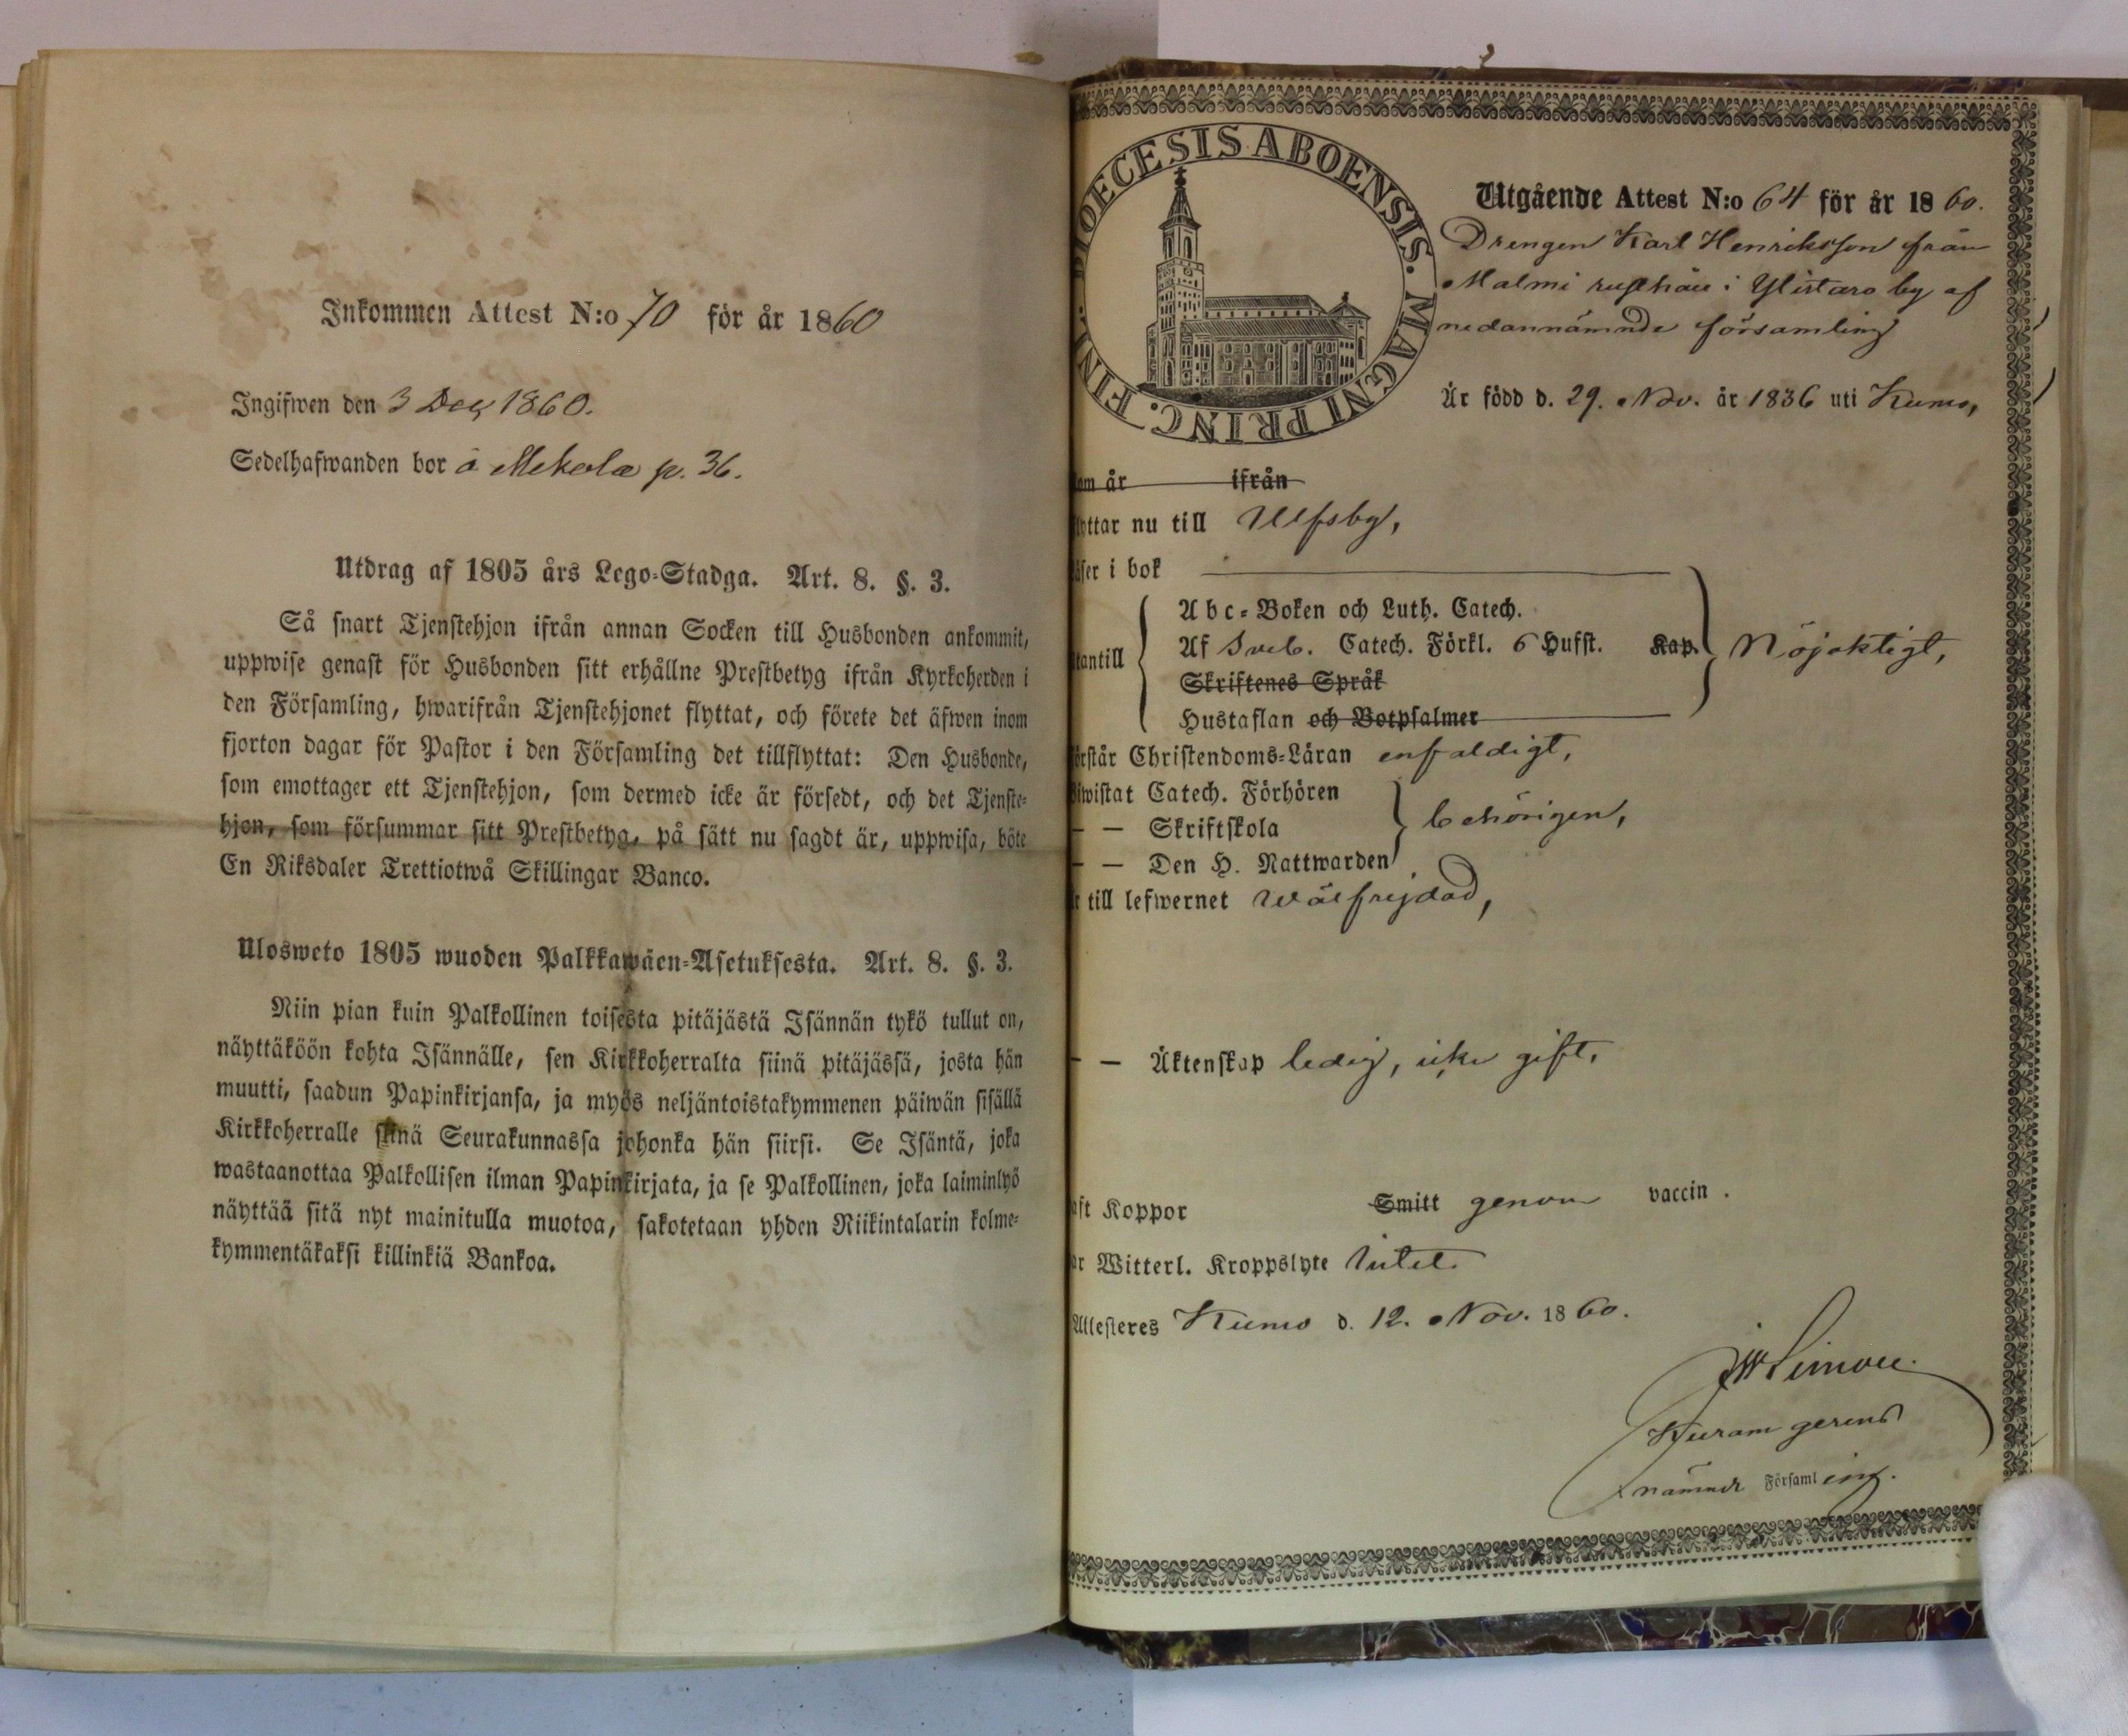 Inkommen Attest N:o 70 för år 1860
Ingifwen den 3 Dec 1860.
Sedelhafwanden bor å Mekola p. 36.
Utdrag af 1805 års Lego-Stadga. Art. 8. §. 3.
Så snart Tjenstehjon ifrån annan Socken till Husbonden ankommit,
uppwise genast för Husbonden sitt erhållne Prestbetyg ifrån Kyrkoherden i
den Församling, hwarifrån Tjenstehjonet flyttat, och förete det äfwen inom
fjorton dagar för Pastor i den Församling det tillflyttat: Den Husbonde,
som emottager ett Tjenstehjon, som dermed icke är försedt, och det Tjenste-
hjon, som försummar sitt Prestbetyg, på sätt nu sagdt är, uppwisa, böte
En Riksdaler Trettiotwå Skillingar Banco.
Ulosweto 1805 wuoden Palkkawäen-Asetuksesta. Art. 8. §. 3.
Niin pian kuin Palkollinen toisesta pitäjästä Isännän tykö tullut on,
näyttäköön kohta Isännälle, sen Kirkkoherralta siinä pitäjässä, josta hän
muutti, saadun Papinkirjansa, ja myös neljäntoistakymmenen päiwän sisällä
Kirkkoherralle siinä Seurakunnassa johonka hän siirsi. Se Isäntä, joka
wastaanottaa Palkollisen ilman Papinkirjata, ja se Palkollinen, joka laiminlyö
näyttää sitä nyt mainitulla muotoa, sakotetaan yhden Riikintalarin kolme-
kymmentäkaksi killinkiä Bankoa.
DIOECESIS ABOENSIS. MAGNI PRINC. FINL.
Utgående Attest N:o 64 för år 1860.
Drengen Karl Henriksson från
Malmi rusthåll i Ylistaro by af
nedannämnde församling
Är född d. 29. Nov. år 1836 uti Kumo,
om år ifrån
lyttar nu till Ulfsby,
äser i bok
Abc-Boken och Luth. Catech.
tantill Af Sveb. Catech. Förkl. 6 Hufst. Kap. Nöjaktigt,
Skriftenes Språk
Hustaflan och Botpsalmer
örstår Christendoms-Läran enfaldigt,
iwistat Catech. Förhören
— — Skriftskola behörigen,
— — Den H. Nattwarden
r till lefwernet wälfrejdad,
— — Äktenskap ledig, icke gift,
aft Koppor Smitt genom vaccin.
ar Witterl. Kroppslyte intet.
Attesteres Kumo d. 12. Nov. 1860.
Kuram gerens
nämnde Församling.